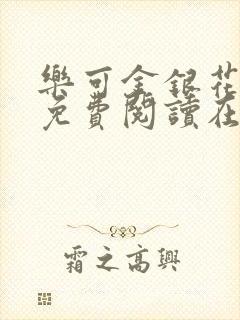 樂可金銀花
免費閱讀在
霜之高興